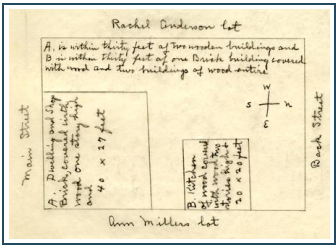 Rachel Anderson lot
A. is within thirty feet of two wooden buildings and
B is within thirty feet of one Brick building covered
with wood and two buildings of wood entire
W
S
N
E
Main Street
Back Street
A. Dwelling and Shop
Brick, covered with
wood one story high
and
40 x 27 feet
B. Kitchen
of wood covered
with wood two
stories high
20 x 20 feet
Ann Millers lot